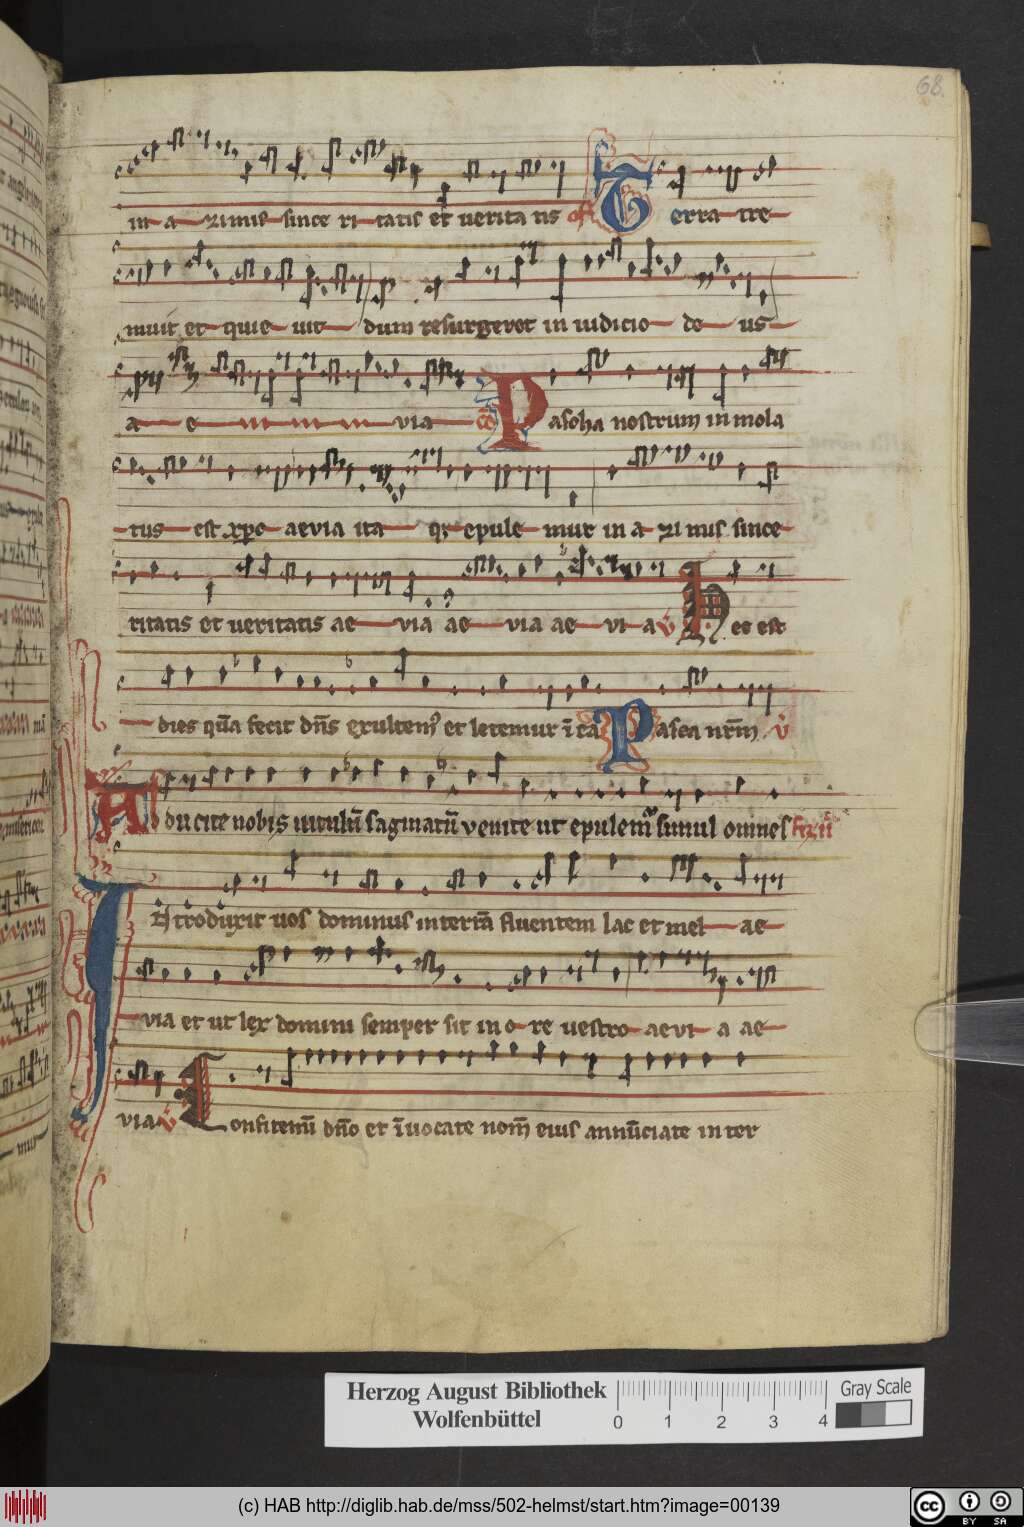 68.
in a zimis since ri tatis et verita tis off Terra tre
muit et quie vit dum resurgeret in iudicio de us
a e via co Pascha nostrum immola
tus est xpc aevia ita qz epule mur in a zi mis since
ritatis et veritatis ae via ae via ae vi a v Hec est
dies q̄a fecit dn̄s exultem' et letemur ī ea Pasca nr̄m v
Adducite nobis vitulū saginatū venite ut epulem' simul omnes
Introduxit vos dominus in terrā fluentem lac et mel ae
via et ut lex domini semper sit in o re vestro aevi a ae
via v Confitemī dn̄o et īvocate nom̄ eius annūciate inter
Herzog August Bibliothek
Wolfenbüttel
0 1 2 3 4
Gray Scale
(c) HAB http://diglib.hab.de/mss/502-helmst/start.htm?image=00139
cc BY SA